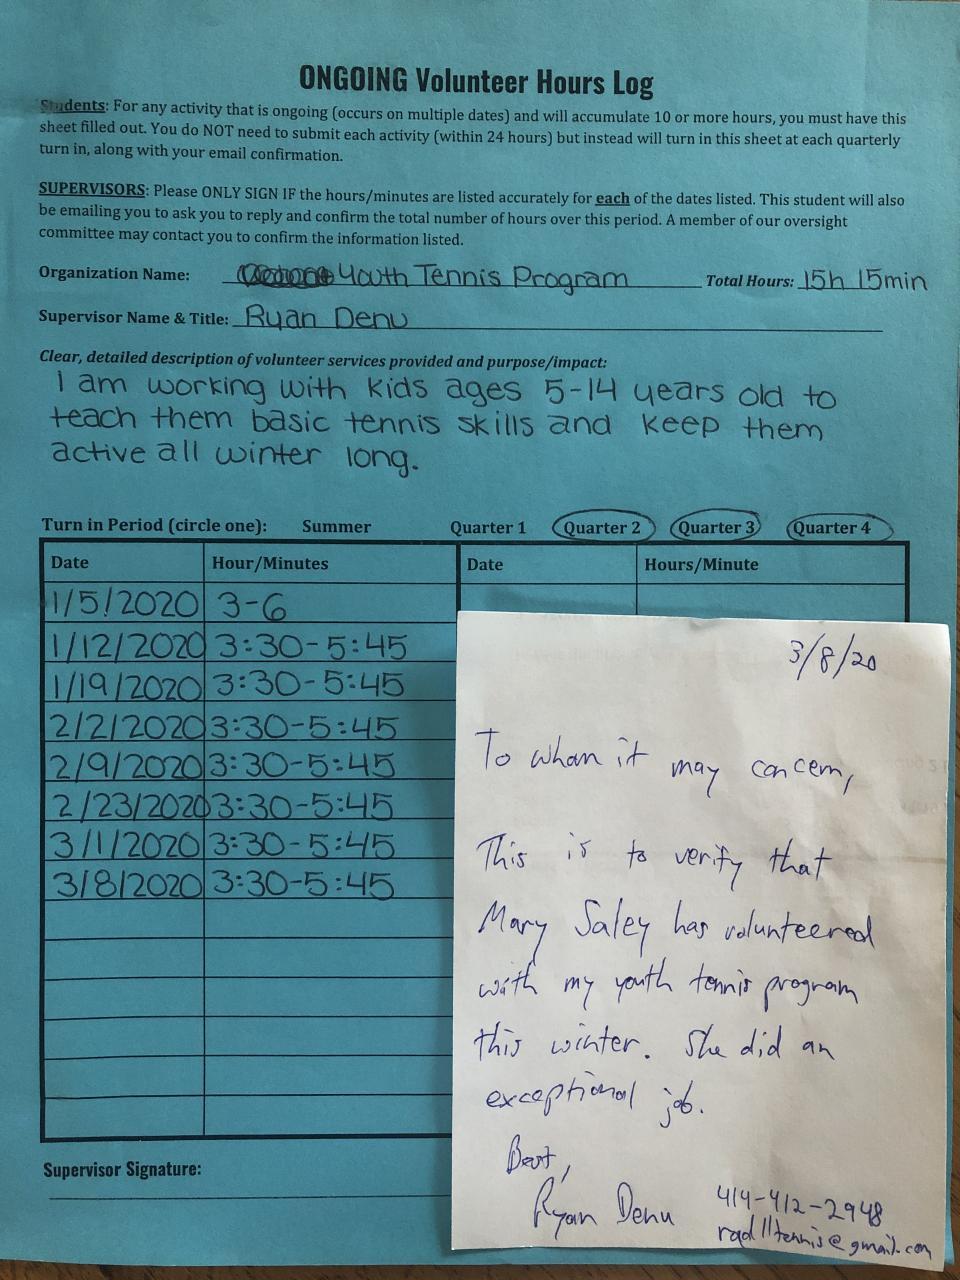 ONGOING Volunteer Hours Log
Students: For any activity that is ongoing (occurs on multiple dates) and will accumulate 10 or more hours, you must have this
sheet filled out. You do NOT need to submit each activity (within 24 hours) but instead will turn in this sheet at each quarterly
turn in, along with your email confirmation.
SUPERVISORS: Please ONLY SIGN IF the hours/minutes are listed accurately for each of the dates listed. This student will also
be emailing you to ask you to reply and confirm the total number of hours over this period. A member of our oversight
committee may contact you to confirm the information listed.
Organization Name: Youth Tennis Program Total Hours: 15h 15min
Supervisor Name & Title: Ryan Denu
Clear, detailed description of volunteer services provided and purpose/impact:
I am working with kids ages 5-14 years old to
teach them basic tennis skills and keep them
active all winter long.
Turn in Period (circle one): Summer Quarter 1 Quarter 2 Quarter 3 Quarter 4
Date Hour/Minutes Date Hours/Minute
1/5/2020 3-6
1/12/2020 3:30-5:45
1/19/2020 3:30-5:45
2/2/2020 3:30-5:45
2/9/2020 3:30-5:45
2/23/2020 3:30-5:45
3/1/2020 3:30-5:45
3/8/2020 3:30-5:45
Supervisor Signature:
3/8/20
To whom it may concern,
This is to verify that
Mary Saley has volunteered
with my youth tennis program
this winter. She did an
exceptional job.
Best,
Ryan Denu
414-412-2948
rad11tennis@gmail.com